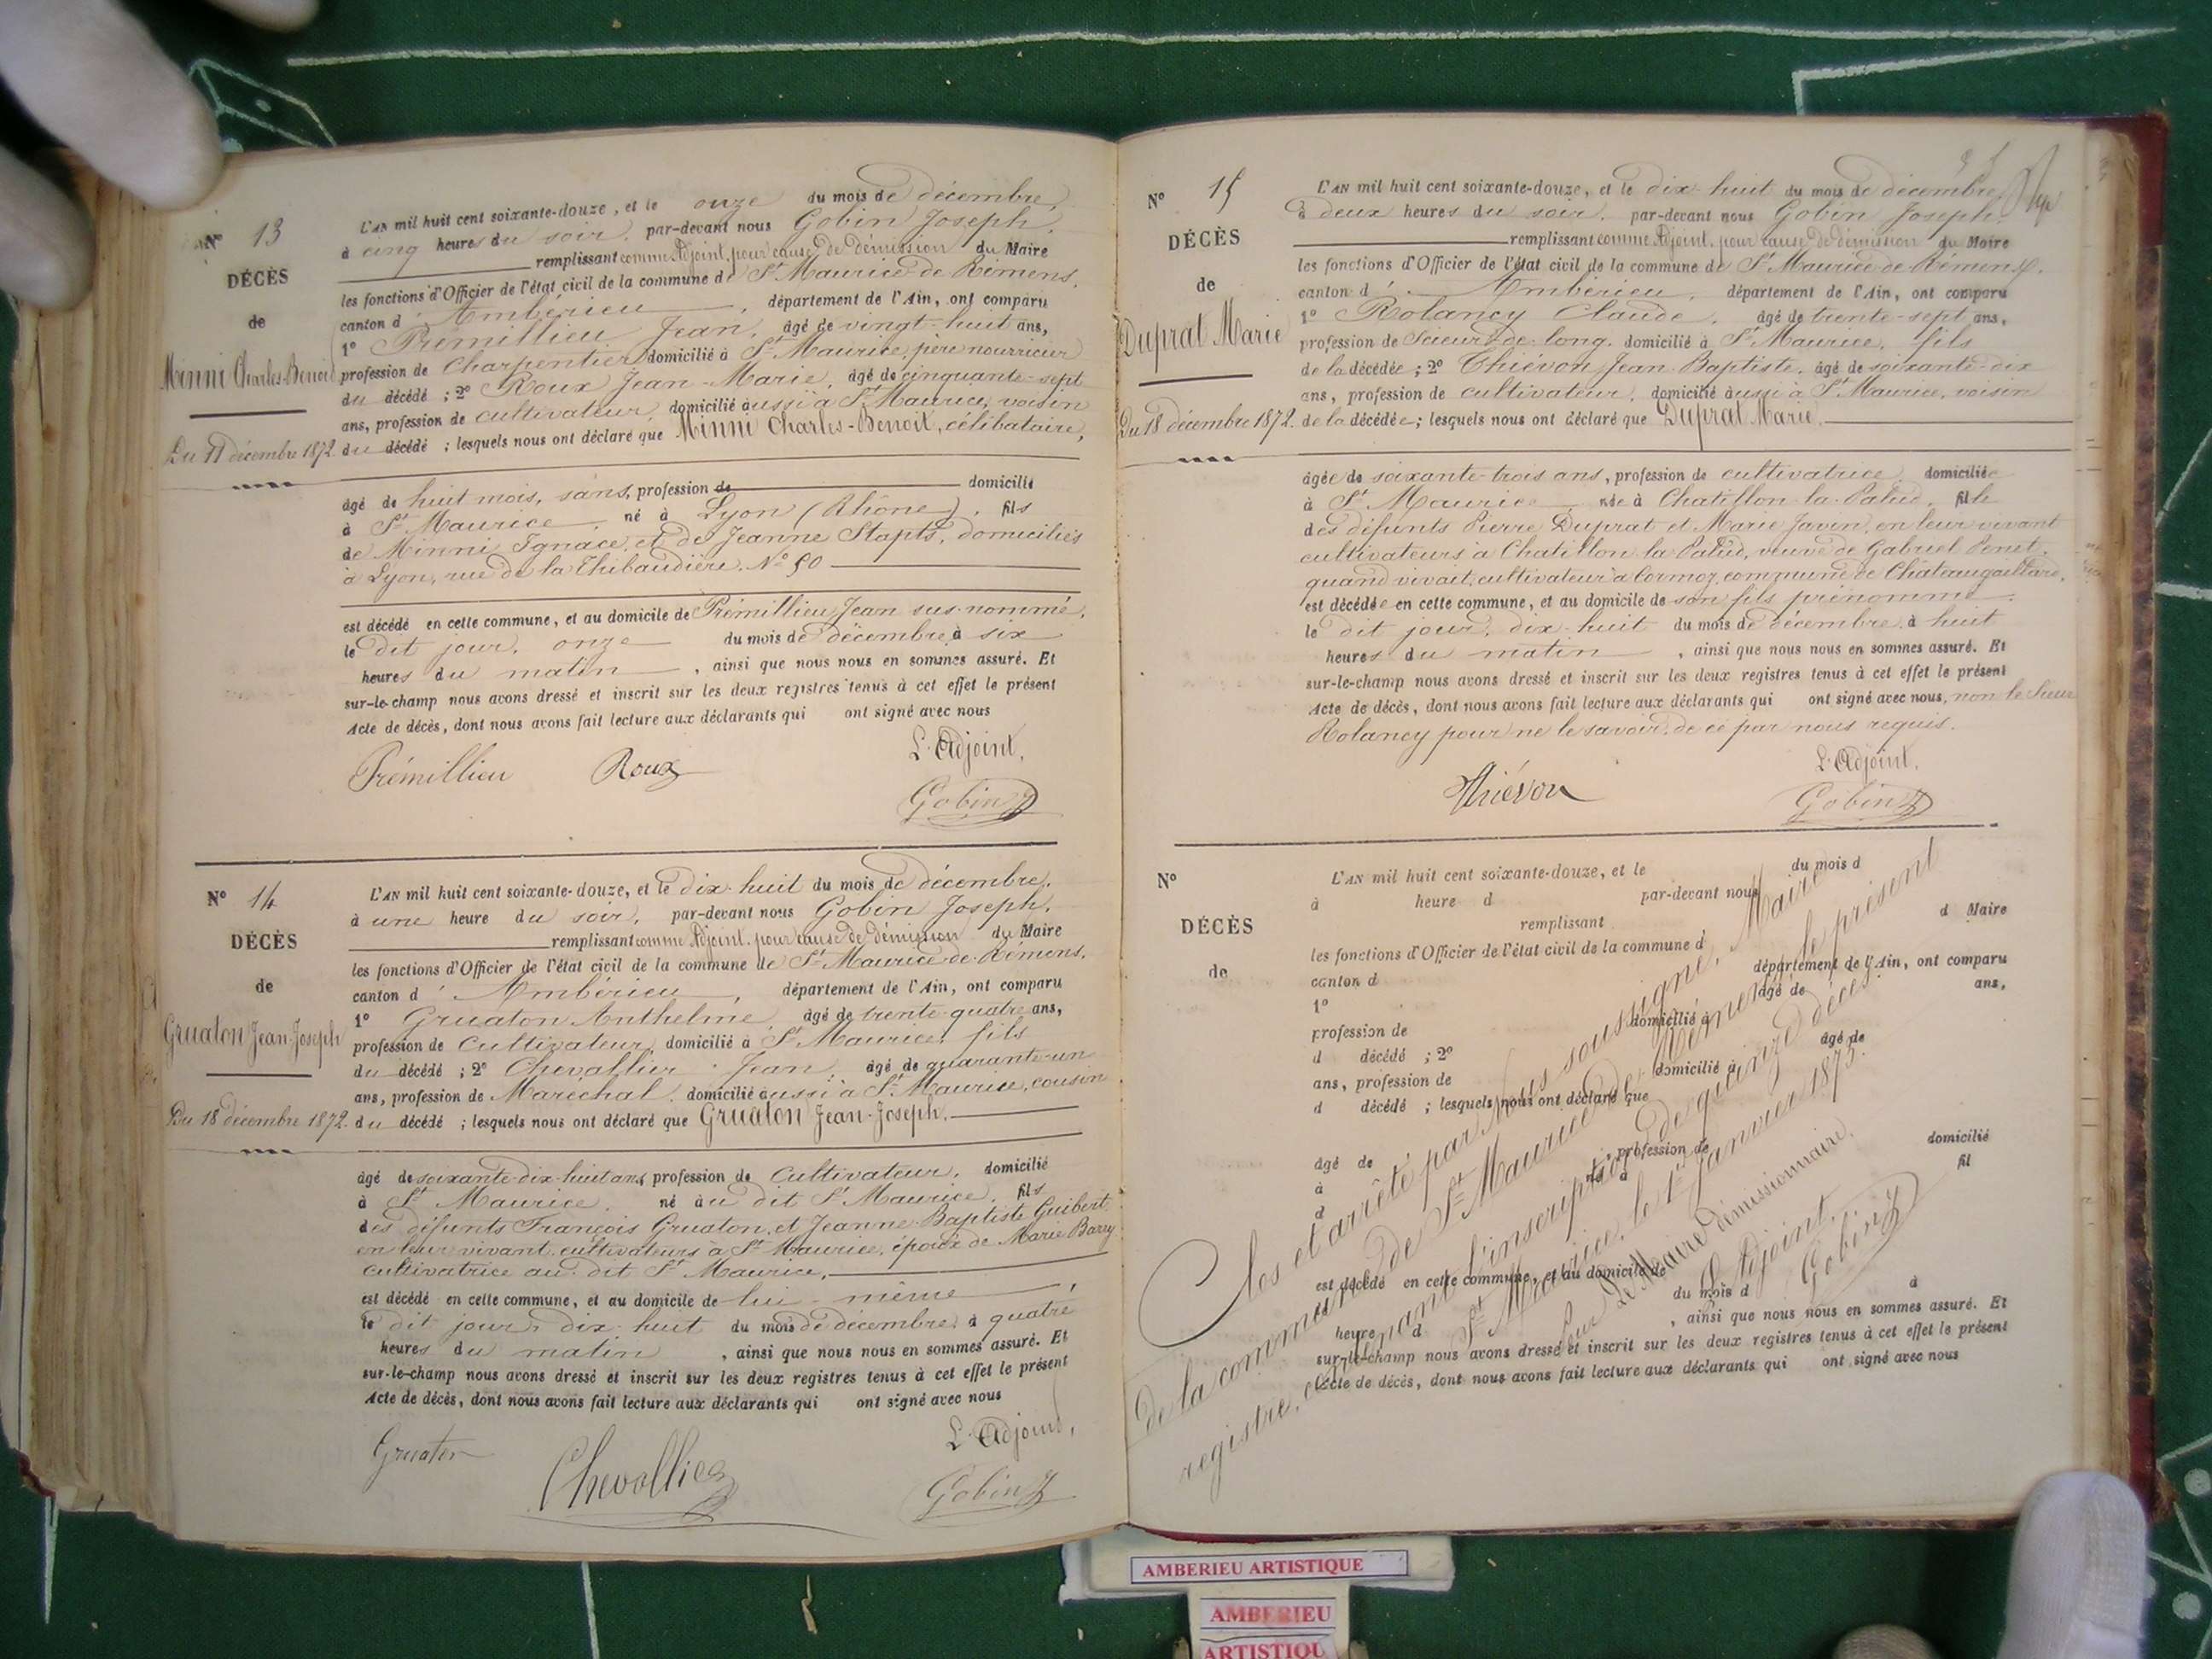 N° 13
DÉCÈS
de
Minni Charles-Benoit
Du 11 décembre 1872.
L'AN mil huit cent soixante-douze, et le onze du mois de décembre,
à cinq heures du soir, par-devant nous Gobin Joseph,
remplissant comme Adjoint, pour cause de démission du Maire
les fonctions d'Officier de l'état civil de la commune de St Maurice de Rémens,
canton d'Ambérieu, département de l'Ain, ont comparu
1° Prémillieu Jean, âgé de vingt-huit ans,
profession de Charpentier domicilié à St Maurice, père nourricier
du décédé ; 2° Roux Jean-Marie, âgé de cinquante-sept
ans, profession de cultivateur, domicilié aussi à St Maurice, voisin
du décédé ; lesquels nous ont déclaré que Minni Charles-Benoit, célibataire,
âgé de huit mois, sans profession de domicilié
à St Maurice, né à Lyon (Rhône), fils
de Minni Ignace, et de Jeanne Stapts, domiciliés
à Lyon, rue de la Thibaudière, N° 50
est décédé en cette commune, et au domicile de Prémillieu Jean sus-nommé,
le dit jour, onze du mois de décembre, à six
heures du matin, ainsi que nous nous en sommes assuré. Et
sur-le-champ nous avons dressé et inscrit sur les deux registres tenus à cet effet le présent
Acte de décès, dont nous avons fait lecture aux déclarants qui ont signé avec nous
L'Adjoint,
Prémillieu Roux
Gobin J
N° 14
DÉCÈS
de
Gruaton Jean-Joseph
Du 18 décembre 1872.
L'AN mil huit cent soixante-douze, et le dix-huit du mois de décembre,
à une heure du soir, par-devant nous Gobin Joseph,
remplissant comme Adjoint, pour cause de démission du Maire
les fonctions d'Officier de l'état civil de la commune de St Maurice-de-Rémens,
canton d'Ambérieu, département de l'Ain, ont comparu
1° Gruaton Anthelme, âgé de trente-quatre ans,
profession de Cultivateur, domicilié à St Maurice, fils
du décédé ; 2° Chevallier Jean, âgé de quarante-un
ans, profession de Maréchal, domicilié aussi à St Maurice, cousin
du décédé ; lesquels nous ont déclaré que Gruaton Jean-Joseph,
âgé de soixante-dix-huit ans, profession de Cultivateur, domicilié
à St Maurice, né au dit St Maurice, fils
des défunts François Gruaton, et Jeanne-Baptiste Guibert,
en leur vivant, cultivateurs à St Maurice, époux de Marie Barry
cultivatrice au dit St Maurice,
est décédé en cette commune, et au domicile de lui-même,
le dit jour, dix-huit du mois de décembre, à quatre
heures du matin, ainsi que nous nous en sommes assuré. Et
sur-le-champ nous avons dressé et inscrit sur les deux registres tenus à cet effet le présent
Acte de décès, dont nous avons fait lecture aux déclarants qui ont signé avec nous
L'Adjoint,
Gruaton
Chevallier
Gobin J
N° 15
DÉCÈS
de
Duprat Marie
Du 18 décembre 1872.
L'AN mil huit cent soixante-douze, et le dix-huit du mois de décembre,
à deux heures du soir, par-devant nous Gobin Joseph,
remplissant comme Adjoint, pour cause de démission du Maire
les fonctions d'Officier de l'état civil de la commune de St Maurice-de-Rémens,
canton d'Ambérieu, département de l'Ain, ont comparu
1° Rolancy Claude, âgé de trente-sept ans,
profession de Scieur de long, domicilié à St Maurice, fils
de la décédée ; 2° Thiévon Jean-Baptiste, âgé de soixante-dix
ans, profession de cultivateur, domicilié aussi à St Maurice, voisin
de la décédée ; lesquels nous ont déclaré que Duprat Marie,
âgée de soixante-trois ans, profession de cultivatrice, domiciliée
à St Maurice, née à Chatillon-la-Palud, fille
des défunts Pierre Duprat et Marie Javin, en leur vivant
cultivateurs à Chatillon la Palud, veuve de Gabriel Penet,
quand vivait, cultivateur à Cormoz, commune de Châteaugaillard,
est décédée en cette commune, et au domicile de son fils prénommé,
le dit jour, dix-huit du mois de décembre, à huit
heures du matin, ainsi que nous nous en sommes assuré. Et
sur-le-champ nous avons dressé et inscrit sur les deux registres tenus à cet effet le présent
Acte de décès, dont nous avons fait lecture aux déclarants qui ont signé avec nous, non le Sieur
Rolancy pour ne le savoir, de ce par nous requis.
L'Adjoint,
Thiévon
Gobin J
N°
DÉCÈS
de
L'AN mil huit cent soixante-douze, et le du mois d
à heure d par-devant nous
remplissant d Maire
les fonctions d'Officier de l'état civil de la commune d
canton d département de l'Ain, ont comparu
1° âgé de ans,
profession de domicilié à
d décédé ; 2° âgé de
ans, profession de domicilié à
d décédé ; lesquels nous ont déclaré que
âgé de profession de domicilié
à né à fil
d
est décédé en cette commune, et au domicile de
le du mois d à
heure d , ainsi que nous nous en sommes assuré. Et
sur-le-champ nous avons dressé et inscrit sur les deux registres tenus à cet effet le présent
Acte de décès, dont nous avons fait lecture aux déclarants qui ont signé avec nous
Clos et arrêté par Nous soussigné, Maire
de la commune de St Maurice de Rémens, le présent
registre, comprenant l'inscription de quinze décès.
St Maurice, le 1er janvier 1873.
Pour Le Maire démissionnaire,
L'Adjoint,
Gobin J
AMBERIEU ARTISTIQUE
AMBERIEU
ARTISTIQU